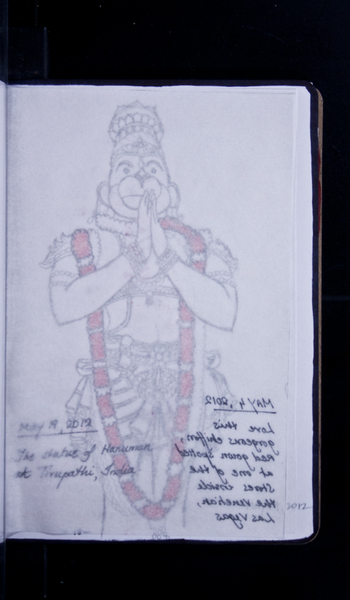 May 19, 2012
The statue of Hanuman
at Tirupathi, India
MAY 4, 2012
Love this
gorgeous chiffon,
red gown spotted
at one of the
stores inside
the Venetian,
Las Vegas
2012